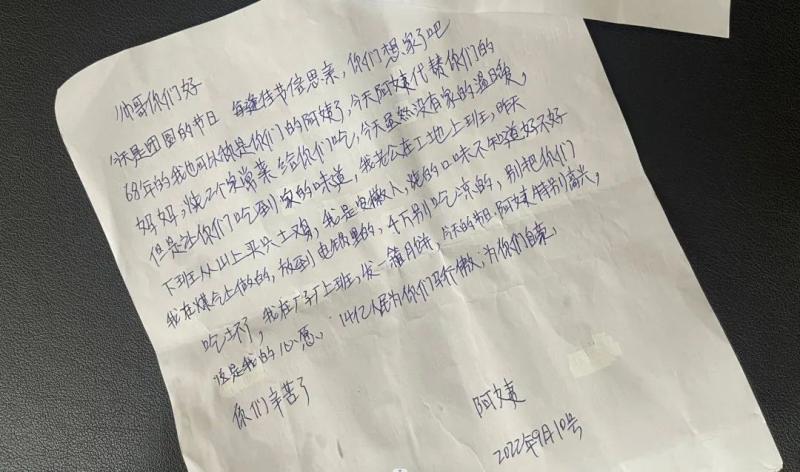 帅哥你们好
今天是团圆的节日 每逢佳节倍思亲,你们想家了吧
68年的我也可以做是你们的阿姨了,今天阿姨代替你们的
妈妈,烧2个家常菜给你们吃,今天虽然没有家的温暖,
但是让你们吃到家的味道,我老公在工地上班,昨天
下班从山上买只土鸡,我是安徽人,烧的口味不知道好不好
我在煤气上做的,放到电锅里的,千万别吃凉的,别把你们
吃坏了,我在厂上班,发一箱月饼,今天的节日,阿姨特别高兴,
这是我的心愿、14亿人民为你们骄傲,为你们自豪,
你们辛苦了
阿姨
2022年9月10号